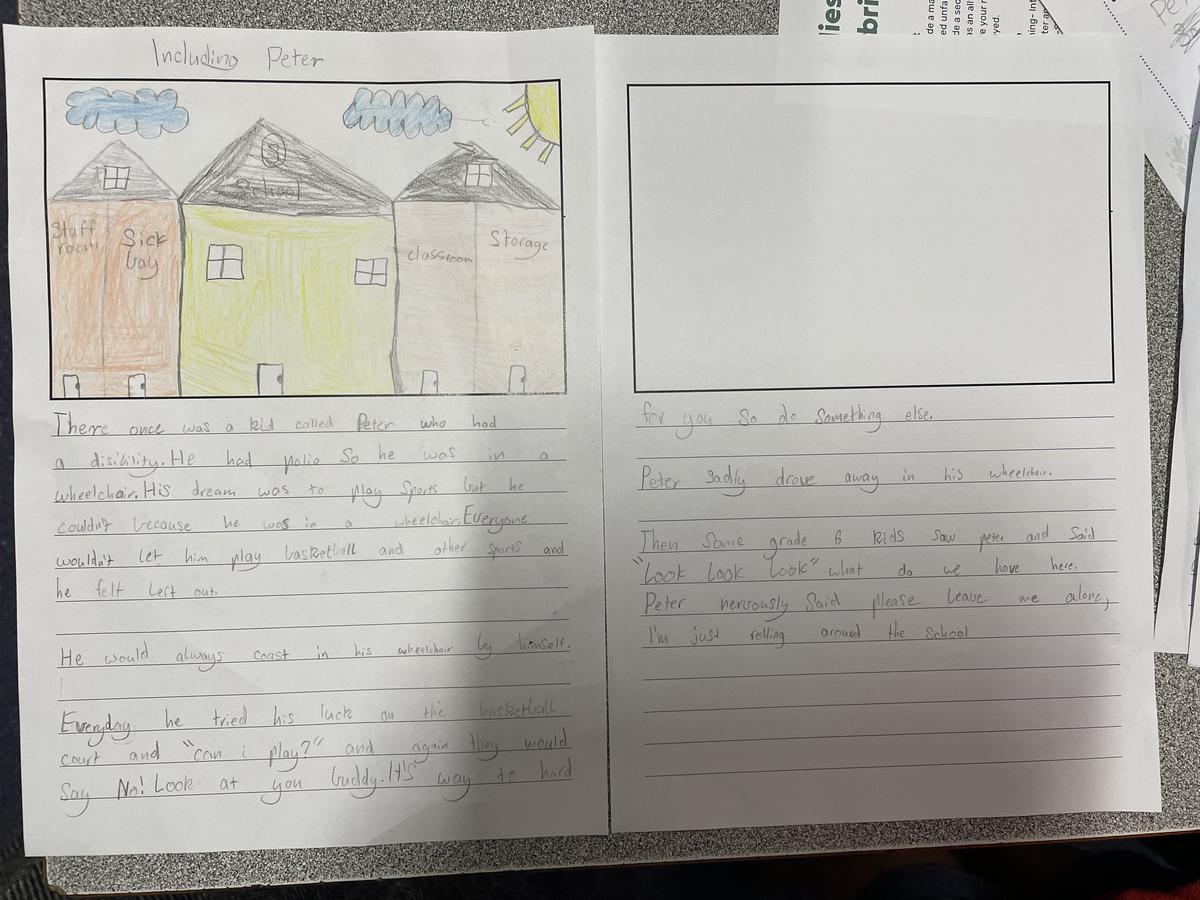 Including Peter
S
School
Staff room
Sick bay
classroom
Storage
There once was a kid called Peter who had
a disibility. He had polio So he was in a
wheelchair. His dream was to play Sports but he
couldn't because he was in a wheelchair. Everyone
wouldn't let him play basketball and other sports and
he felt left out.
He would always coast in his wheelchair by himself.
Everyday he tried his luck on the basketball
court and "can i play?" and again they would
Say No! Look at you buddy. It's way to hard
for you So do Something else.
Peter Sadly drove away in his wheelchair.
Then Some grade 6 kids saw peter and Said
"Look Look Look" what do we have here.
Peter nervously Said please leave me alone,
I'm just rolling around the School
lies
bri
de a ma
ed unfa
de a sec
as an all
e your
yed.
ning- Int
ter an
Pe